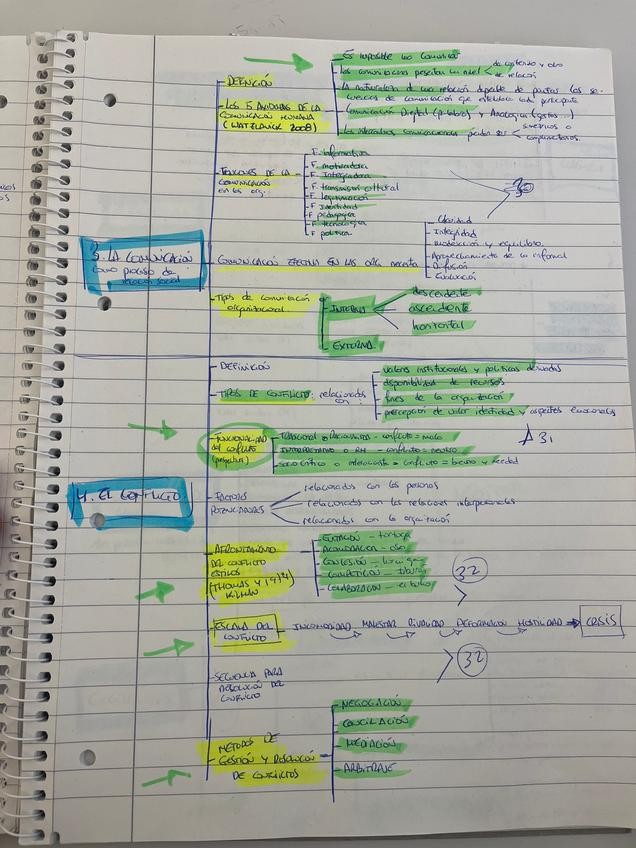 Es imposible no comunicar
DEFINICIÓN
Las comunicaciones poseen un nivel
de contenido y otro
de relación
La naturaleza de una relación depende de
comunicación que establece cada participante
LOS 5 AXIOMAS DE LA
COMUNICACIÓN HUMANA
(WATZLAWICK 2008)
Comunicación Digital (palabras) y Analógica (gestos...)
Los intercambios comunicacionales pueden ser
simétricos o
complementarios.
FUNCIONES DE LA
COMUNICACIÓN
en las org.
F. informativa
F. motivadora
F. Integradora
F. transmisión cultural
F. legitimación
F. Identidad
F. pedagógica
F. tecnológica
F. política
30
3. LA COMUNICACIÓN
como proceso de
relación social
COMUNICACIÓN EFECTIVA EN LAS ORG. necesita
Claridad
Integridad
Moderación y equilibrio
Aprovechamiento de lo informal
Difusión
Evaluación
Tipos de comunicación
organizacional
INTERNA
descendente
ascendente
horizontal
EXTERNA
DEFINICIÓN
TIPOS DE CONFLICTO: relacionados
con
valores institucionales y políticas derivadas
disponibilidad de recursos
fines de la organización
percepción de valor identidad y aspectos emocionales
31
FUNCIONALIDAD
del conflicto
(perspectivas)
TRADICIONAL o RACIONALISTA - conflicto = malo
INTERPRETATIVO o RH - conflicto = neutro
SOCIO CRÍTICO o interaccionista = conflicto = bueno y necesidad
4. EL CONFLICTO
FACTORES
POTENCIADORES
relacionados con las personas
relacionados con las relaciones interpersonales
relacionados con la organización
AFRONTAMIENTO
DEL CONFLICTO
ESTILOS
(THOMAS Y 1974
KILMAN
EVITACIÓN - tortuga
ACOMODACIÓN - oso
CONCESIÓN -
COMPETICIÓN - tiburón
COLABORACIÓN - el búho
32
ESCALA DEL
CONFLICTO
INCOMODIDAD MALESTAR RIVALIDAD DEFORMACIÓN HOSTILIDAD → CRISIS
32
SECUENCIA PARA
RESOLUCIÓN DEL
CONFLICTO
MÉTODOS DE
GESTIÓN Y RESOLUCIÓN
DE CONFLICTOS
NEGOCIACIÓN
CONCILIACIÓN
MEDIACIÓN
ARBITRAJE